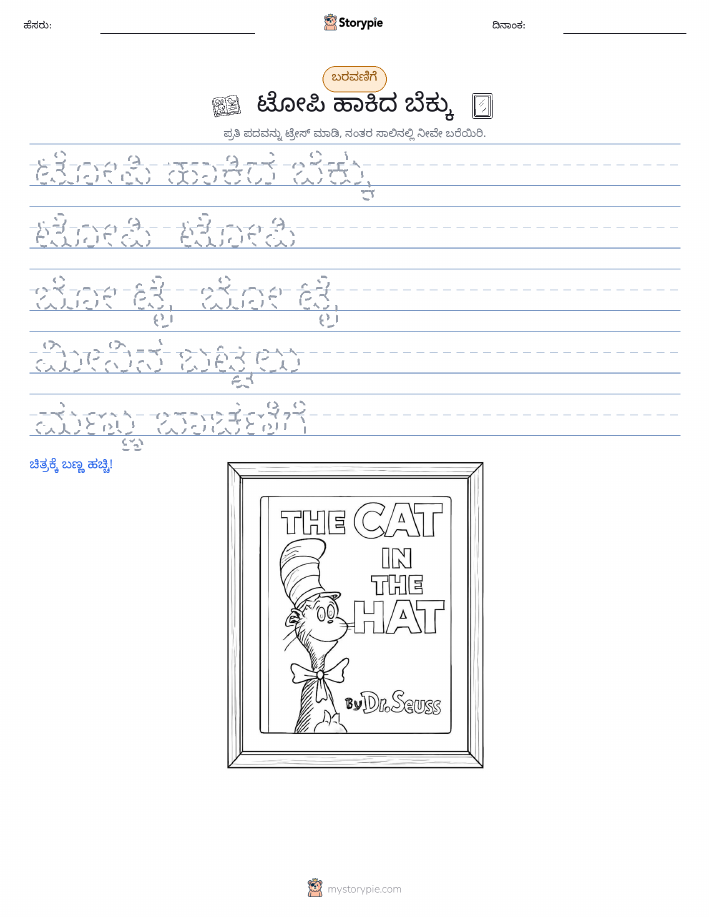 ಹೆಸರು:
Storypie
ದಿನಾಂಕ:
ಬರವಣಿಗೆ
ಟೋಪಿ ಹಾಕಿದ ಬೆಕ್ಕು
ಪ್ರತಿ ಪದವನ್ನು ಟ್ರೇಸ್ ಮಾಡಿ, ನಂತರ ಸಾಲಿನಲ್ಲಿ ನೀವೇ ಬರೆಯಿರಿ.
ಟೋಪಿ ಹಾಕಿದ ಬೆಕ್ಕು
ಟೋಪಿ ಟೋಪಿ
ಬೋ ಟೈ ಬೋ ಟೈ
ಮೀನಿನ ಬಟ್ಟಲು
ಮಣ್ಣು ಬಾಚಣಿಗೆ
ಚಿತ್ರಕ್ಕೆ ಬಣ್ಣ ಹಚ್ಚಿ!
THE CAT
IN
THE
HAT
By Dr. Seuss
mystorypie.com